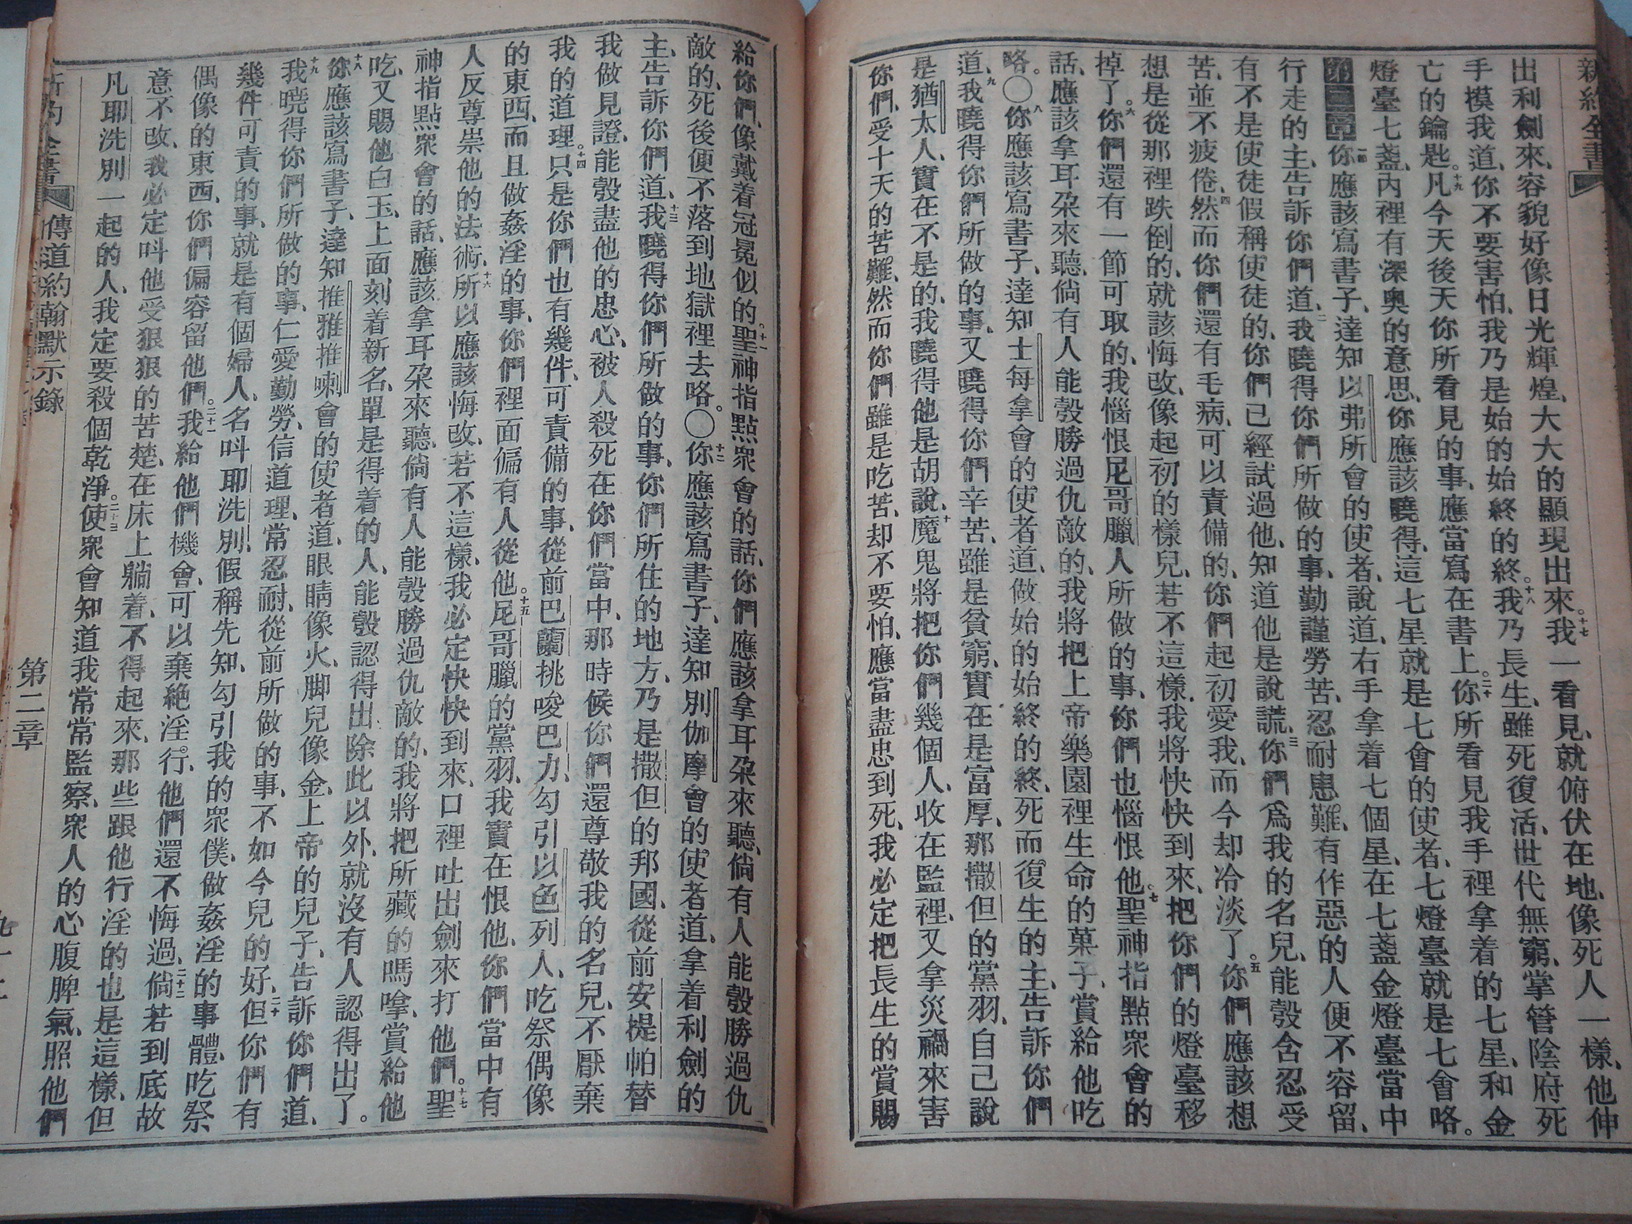 新約全書
出利劍來、容貌好像日光輝煌、大大的顯現出來。十七我一看見、就俯伏在地、像死人一樣、他伸
手摸我、道、你不要害怕、我乃是始的始終的終。十八我乃長生、雖死復活、世代無窮、掌管陰府死
亡的鑰匙。十九凡今天後天你所看見的事、應當寫在書上。二十你所看見我手裡拿着的七星、和金
燈臺七盞、內裡有深奧的意思、你應該曉得、這七星就是七會的使者、七燈臺就是七會略。
第二章一節你應該寫書子、達知以弗所會的使者、說道、右手拿着七個星、在七盞金燈臺當中
行走的主、告訴你們道、二我曉得你們所做的事、勤謹勞苦、忍耐患難、有作惡的人便不容留、
有不是使徒假稱使徒的、你們已經試過他、知道他是說謊、三你們爲我的名兒、能彀含忍受
苦、並不疲倦、四然而你們還有毛病、可以責備的、你們起初愛我、而今却冷淡了。五你們應該想
想是從那裡跌倒的、就該悔改、像起初的樣兒、若不這樣、我將快快到來、把你們的燈臺移
掉了。六你們還有一節可取的、我惱恨尼哥臘人所做的事、你們也惱恨他。七聖神指點衆會的
話、應該拿耳朶來聽、倘有人能彀勝過仇敵的、我將把上帝樂園裡生命的菓子、賞給他吃
略。〇八你應該寫書子、達知士每拿會的使者道、做始的始終的終、死而復生的主、告訴你們
道、九我曉得你們所做的事、又曉得你們辛苦、雖是貧窮、實在是富厚、那撒但的黨羽、自己說
是猶太人、實在不是的、我曉得他是胡說、十魔鬼將把你們幾個人、收在監裡、又拿災禍來害
你們、受十天的苦難、然而你們雖是吃苦、却不要怕、應當盡忠到死、我必定把長生的賞賜
給你們、像戴着冠冕似的。十一聖神指點衆會的話、你們應該拿耳朶來聽、倘有人能彀勝過仇
敵的、死後便不落到地獄裡去略。〇十二你應該寫書子、達知別伽摩會的使者道、拿着利劍的
主、告訴你們道、十三我曉得你們所做的事、你們所住的地方、乃是撒但的邦國、從前安提帕替
我做見證、能彀盡他的忠心、被人殺死在你們當中、那時候你們還尊敬我的名兒、不厭棄
我的道理。十四只是你們也有幾件、可責備的事、從前巴蘭挑唆巴力、勾引以色列人、吃祭偶像
的東西、而且做姦淫的事、你們裡面偏有人從他。十五尼哥臘的黨羽、我實在恨他、你們當中有
人反尊崇他的法術、十六所以應該悔改、若不這樣、我必定快快快到來、口裡吐出劍來打他們。十七聖
神指點衆會的話、應該拿耳朶來聽、倘有人能彀勝過仇敵的、我將把所藏的嗎嗱、賞給他
吃、又賜他白玉、上面刻着新名、單是得着的人、能彀認得出、除此以外、就沒有人認得出了。
十八你應該寫書子、達知推雅推喇會的使者道、眼睛像火、脚兒像金、上帝的兒子、告訴你們道、
十九我曉得你們所做的事、仁愛勤勞、信道理、常忍耐、從前所做的事、不如今兒的好、二十但你們有
幾件可責的事、就是有個婦人、名叫耶洗別、假稱先知、勾引我的衆僕、做姦淫的事體、吃祭
偶像的東西、你們偏容留他們。二十一我給他們機會、可以棄絶淫行、他們還不悔過、二十二倘若到底故
意不改、我必定叫他受狠狠的苦楚、在床上躺着、不得起來、那些跟他行淫的也是這樣、但
凡耶洗別一起的人、我定要殺個乾淨。二十三使衆會知道我常常監察、衆人的心腹脾氣、照他們
新約全書 傳道約翰默示錄 第二章